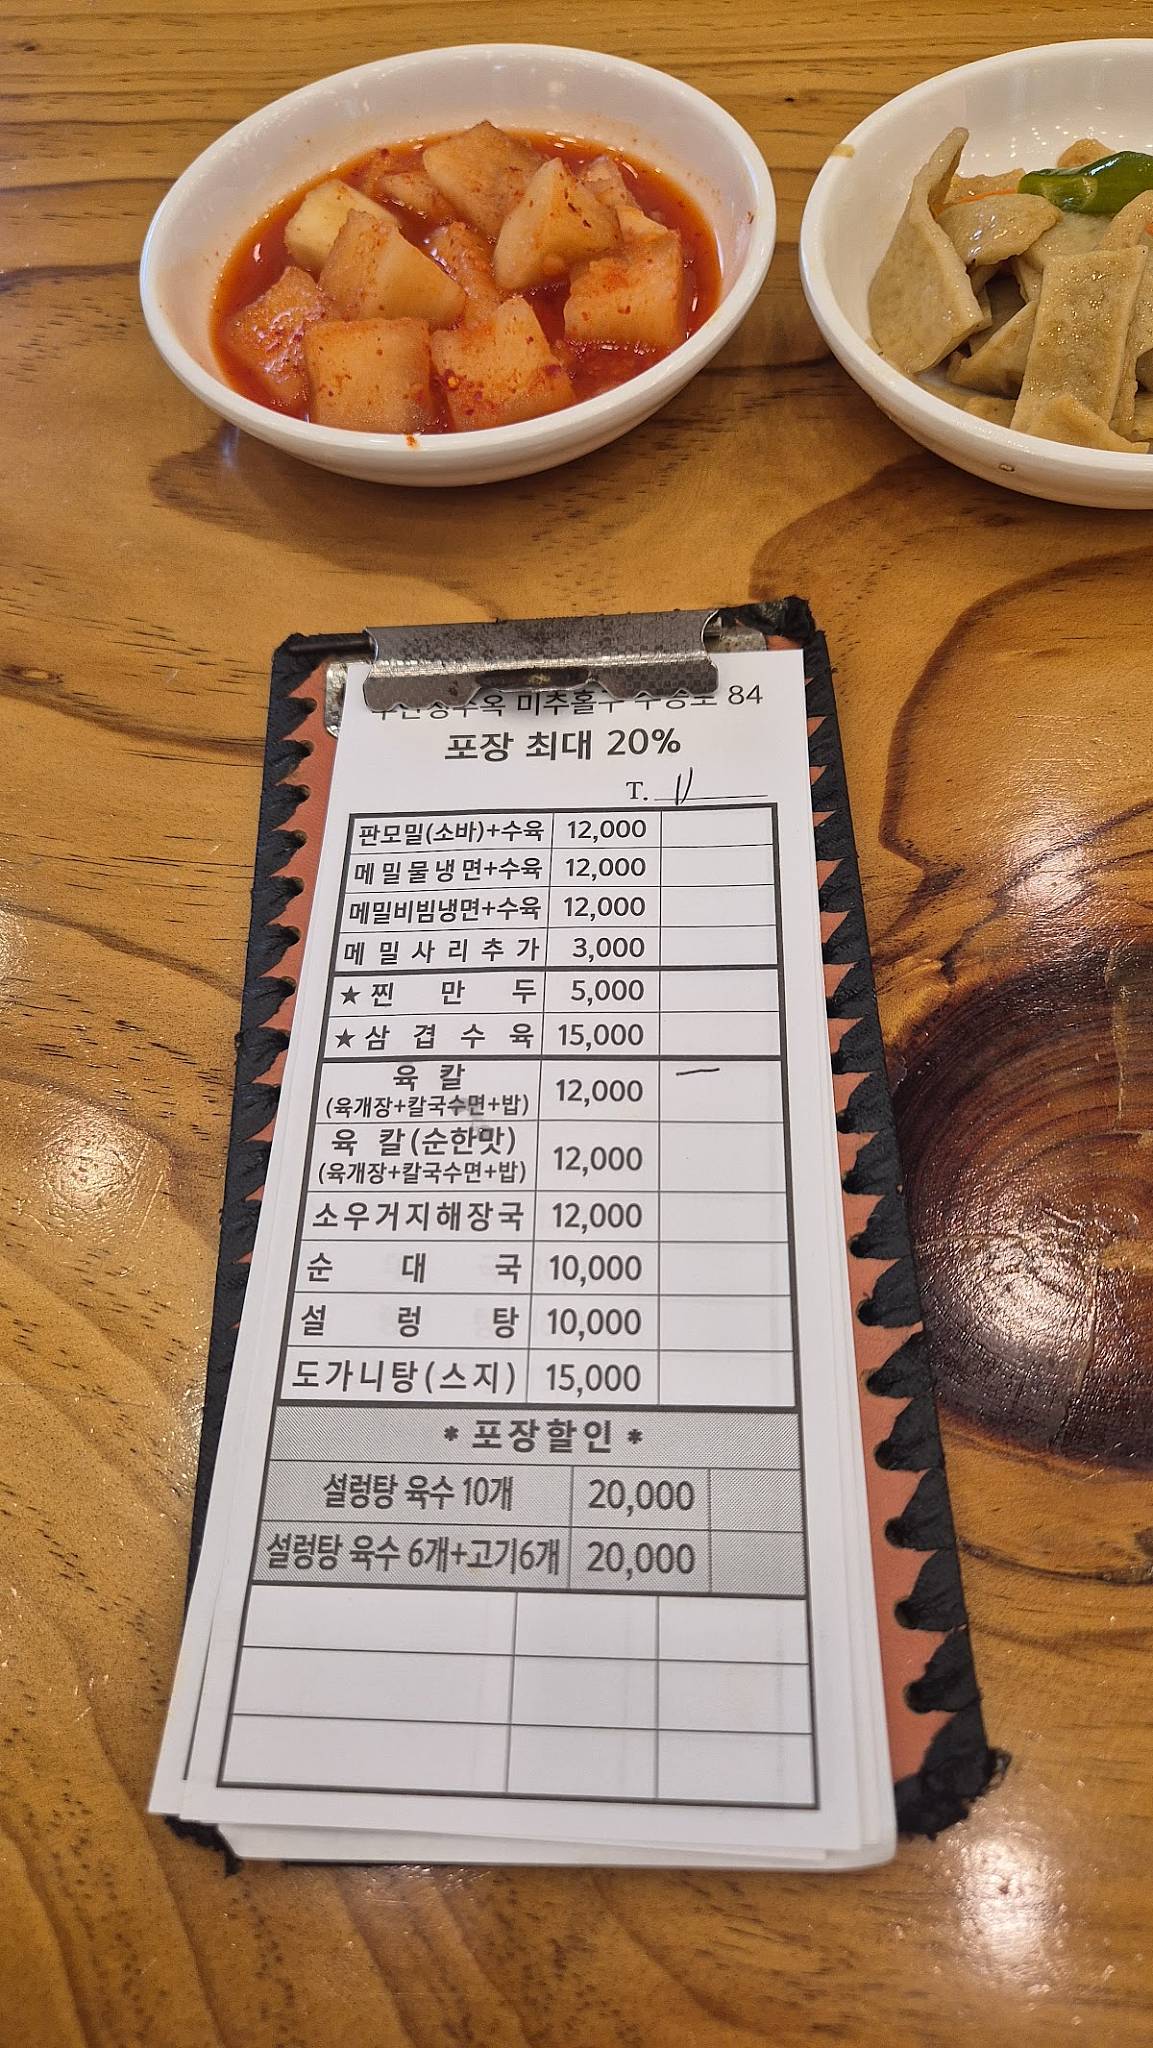 미추홀구 84
포장 최대 20%
T. 11
판모밀(소바)+수육 12,000
메밀물냉면+수육 12,000
메밀비빔냉면+수육 12,000
메밀사리추가 3,000
★찐만두 5,000
★삼겹수육 15,000
육칼 12,000 —
(육개장+칼국수면+밥)
육칼(순한맛) 12,000
(육개장+칼국수면+밥)
소우거지해장국 12,000
순대국 10,000
설렁탕 10,000
도가니탕(스지) 15,000
* 포장할인 *
설렁탕 육수 10개 20,000
설렁탕 육수 6개+고기6개 20,000